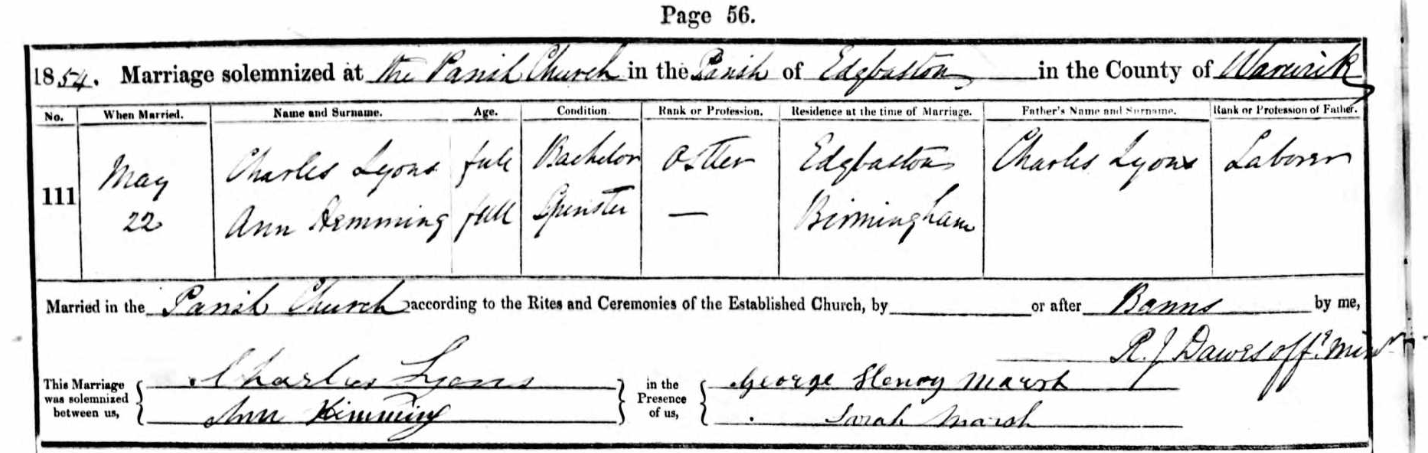 Page 56.
1854. Marriage solemnized at the Parish Church in the Parish of Edgbaston in the County of Warwick
No. When Married. Name and Surname. Age. Condition Rank or Profession. Residence at the time of Marriage. Father's Name and Surname. Rank or Profession of Father.
111 May 22 Charles Lyons full Bachelor Ostler Edgbaston Charles Lyons Laborer
Ann Hemming full Spinster — Birmingham
Married in the Parish Church according to the Rites and Ceremonies of the Established Church, by or after Banns by me,
R. J. Dawes offg. Minr
This Marriage was solemnized between us, Charles Lyons in the Presence of us, George Henry Marsh
Ann Himming Sarah Marsh